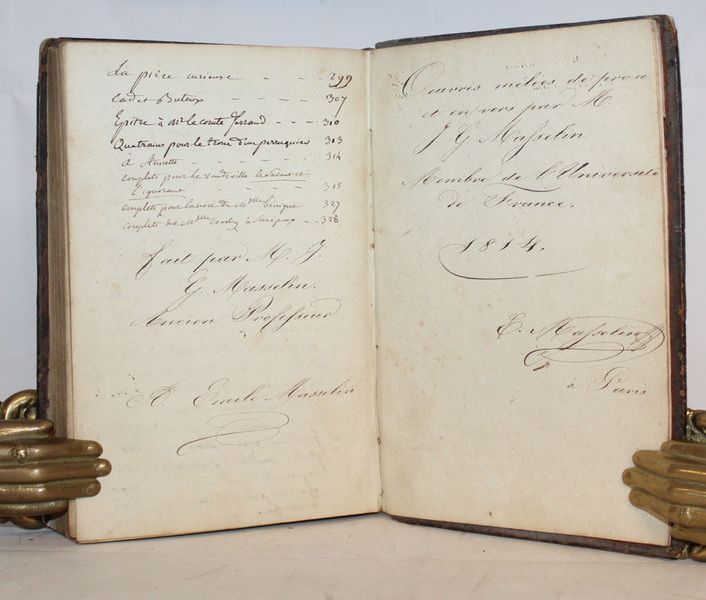 La pièce curieuse - - - 299
Cadet Buteux - - - - 307
Epitre à Mr. le comte ferrand - - - 310
Quatrains pour le tems d'un perruquier 313
A Annette - - - - 314
couplets pour le Vaudeville le Savant et
l'ignorant - - - - 315
couplets pour la noce de Mlle - 327
couplets de Mlle à - - 328
fait par M. J.
G. Masselin.
Ancien Professeur
A Emile Masselin
Oeuvres mêlées de prose
et en vers par M.
J. G. Masselin
Membre de l'Université
de France.
1814.
E. Masselin
à Paris